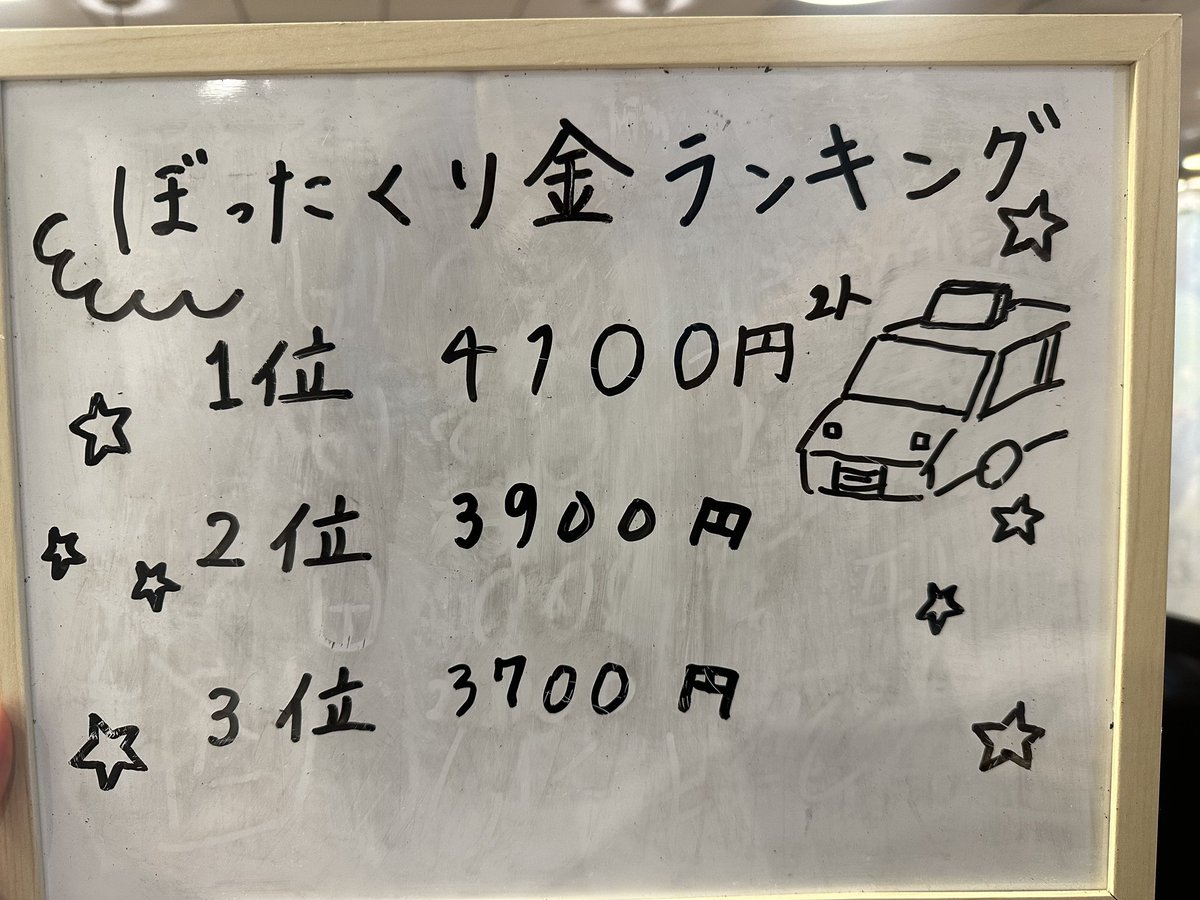 ぼったくり金ランキング
1位 4100円
2位 3900円
3位 3700円